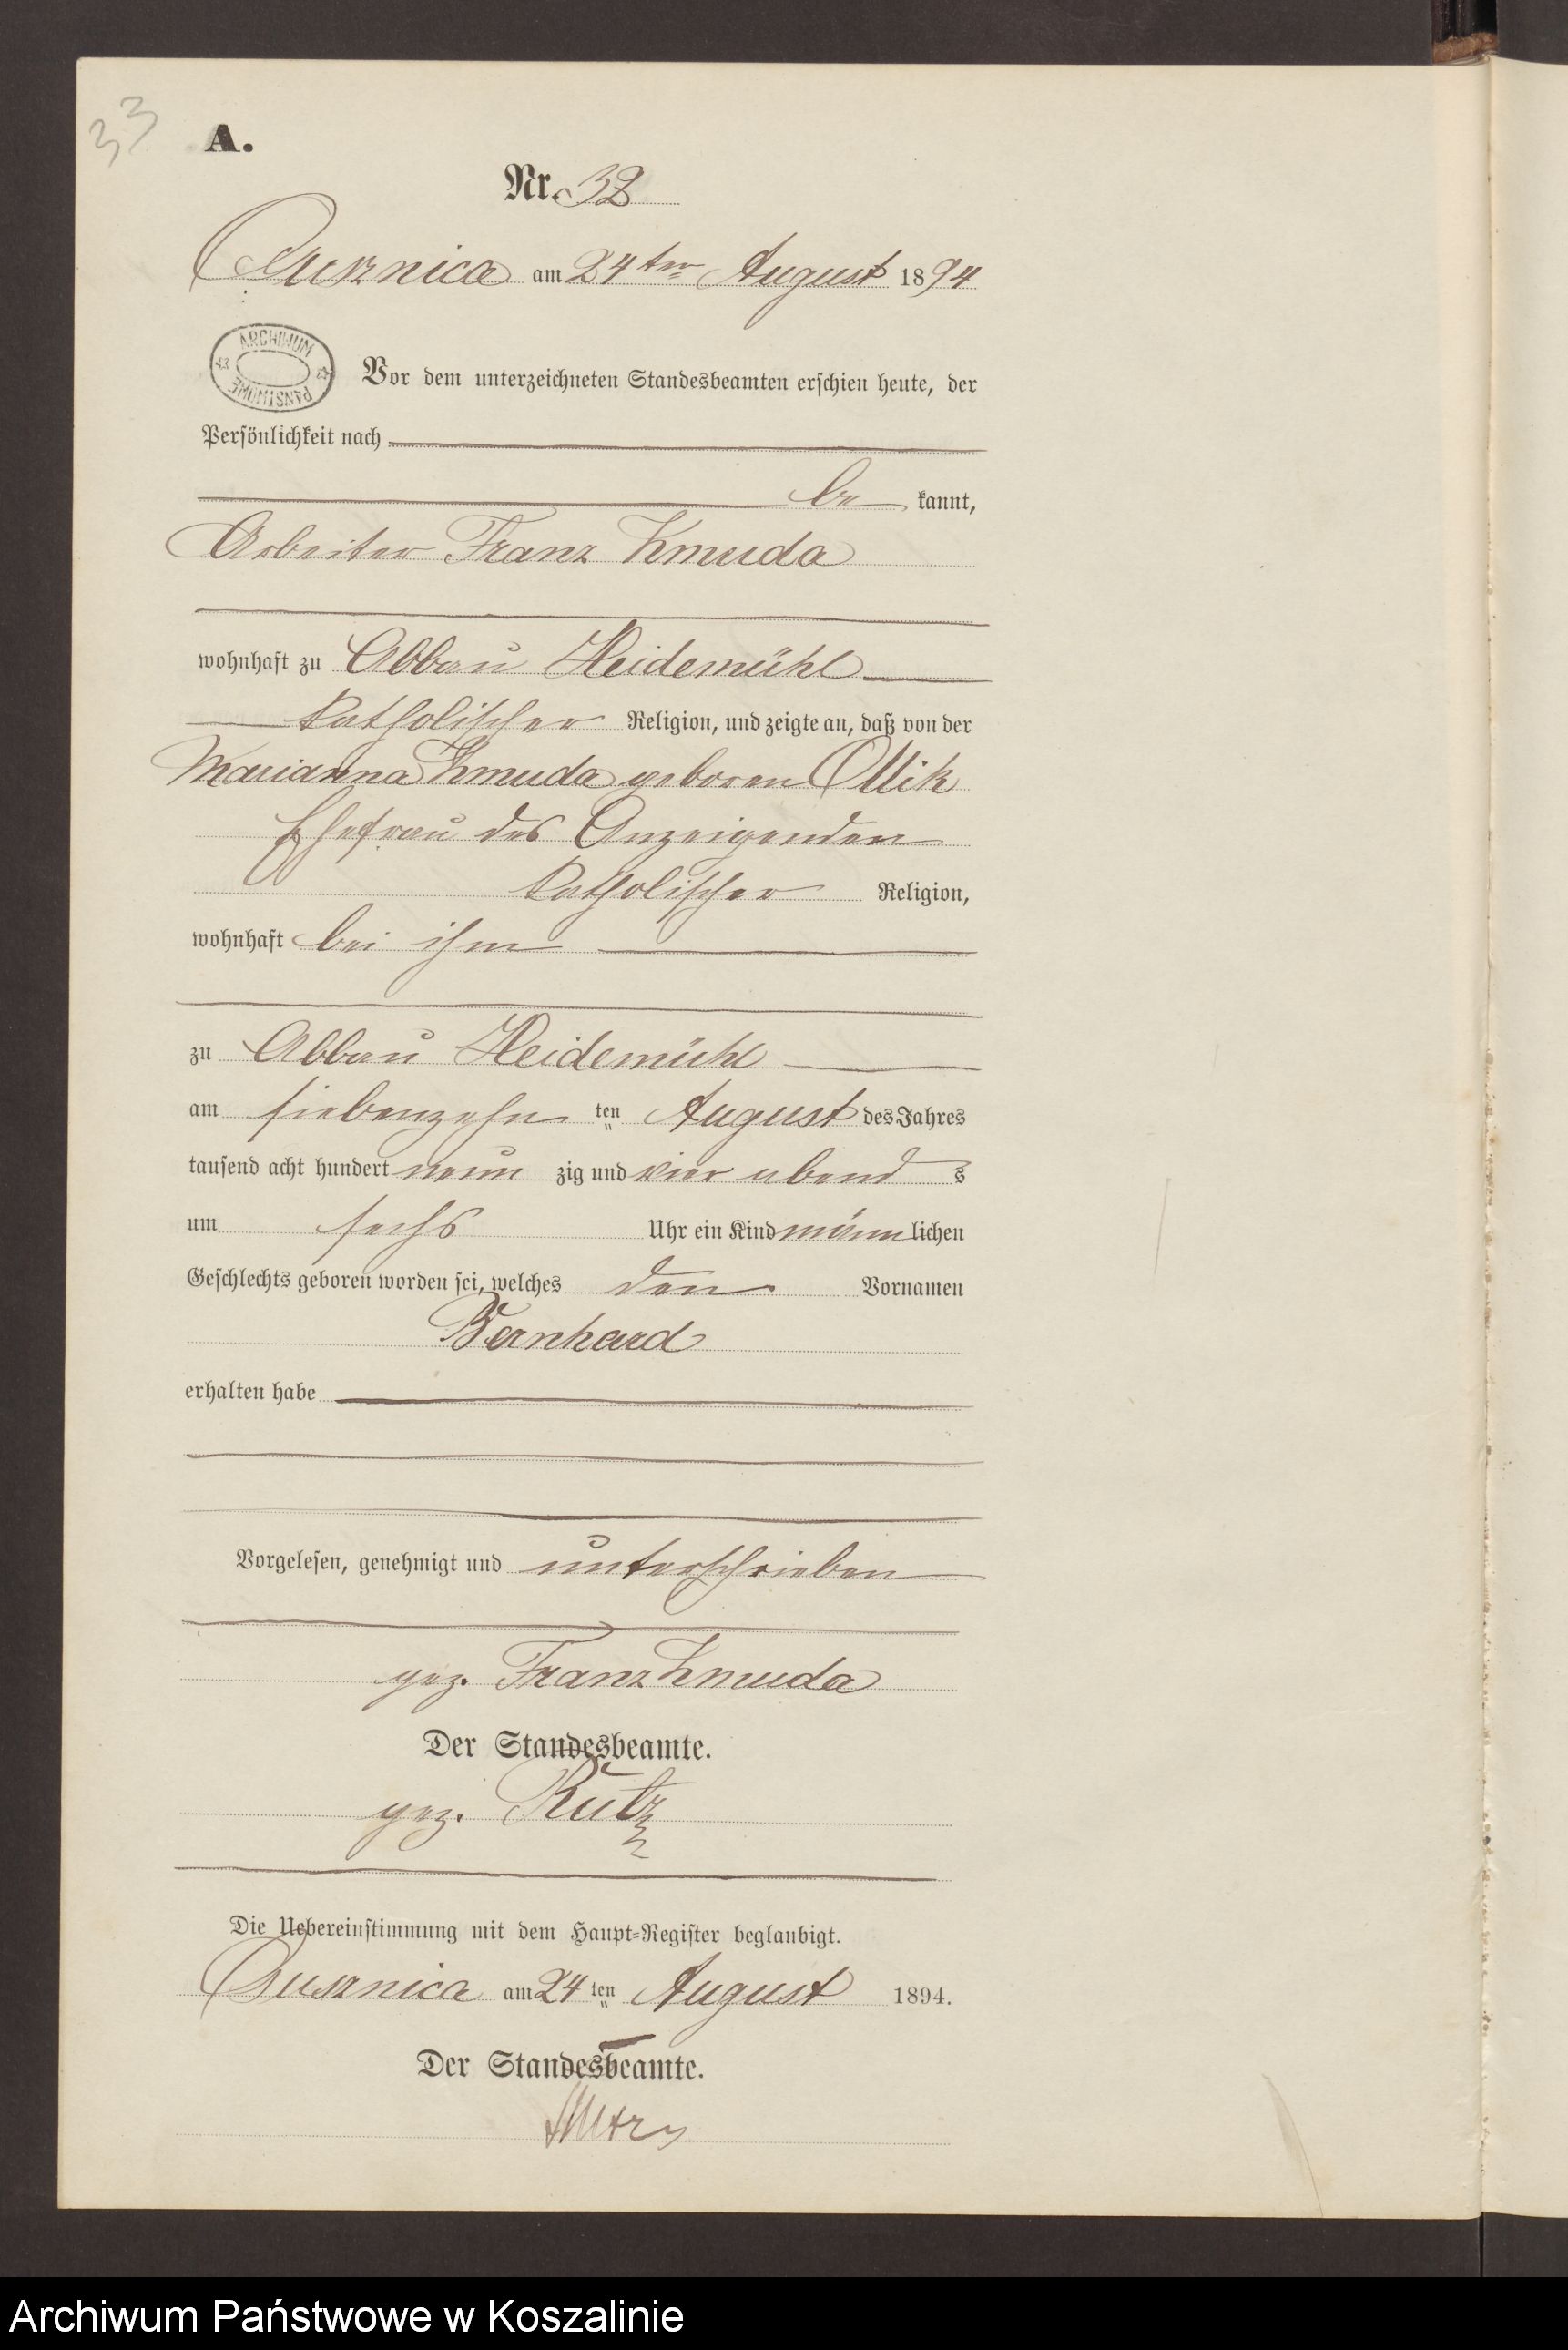 33
A.
Nr. 32
Ossusznica am 24ten August 1894
ARCHIWUM PAŃSTWOWE
Vor dem unterzeichneten Standesbeamten erschien heute, der
Persönlichkeit nach
be kannt,
Arbeiter Franz Zmuda
wohnhaft zu Abbau Heidemühl
katholischer Religion, und zeigte an, daß von der
Marianna Zmuda geboren Ollik
Ehefrau des Anzeigenden
katholischer Religion,
wohnhaft bei ihm
zu Abbau Heidemühl
am siebenzehn ten August des Jahres
tausend acht hundert neun zig und vier abend s
um sechs Uhr ein Kind männ lichen
Geschlechts geboren worden sei, welches den Vornamen
Bernhard
erhalten habe
Vorgelesen, genehmigt und unterschrieben
gez. Franz Zmuda
Der Standesbeamte.
gez. Rutz
Die Uebereinstimmung mit dem Haupt-Register beglaubigt.
am 24 ten August 1894.
Der Standesbeamte.
Archiwum Państwowe w Koszalinie